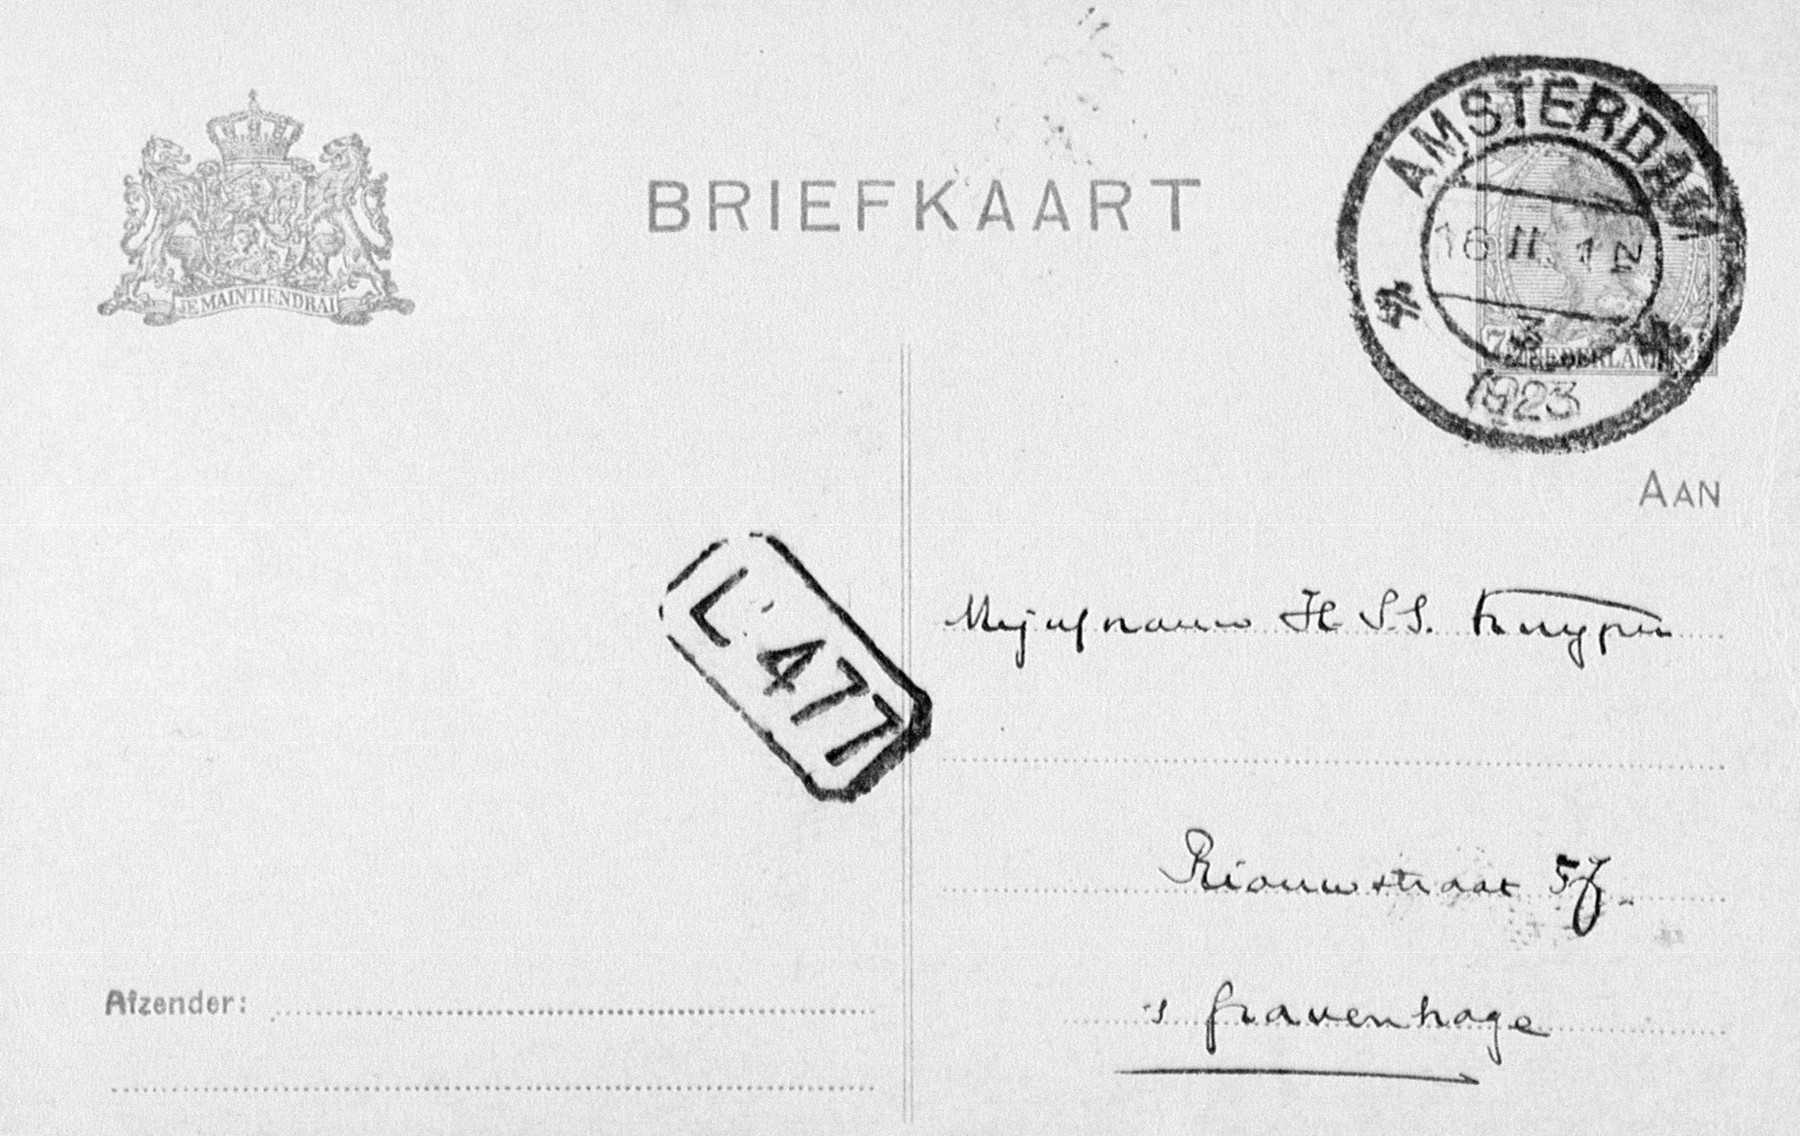 BRIEFKAART
JE MAINTIENDRAI
AMSTERDAM
16 II. 12 N
3
1923
7½ NEDERLAND
AAN
L 477
Mejufnauw H. S. S. Kuyper
Riouwstraat 5
's Gravenhage
Afzender: